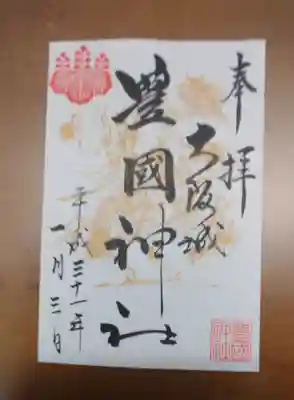 奉拝
大阪城
豊國神社
平成三十一年
一月三日